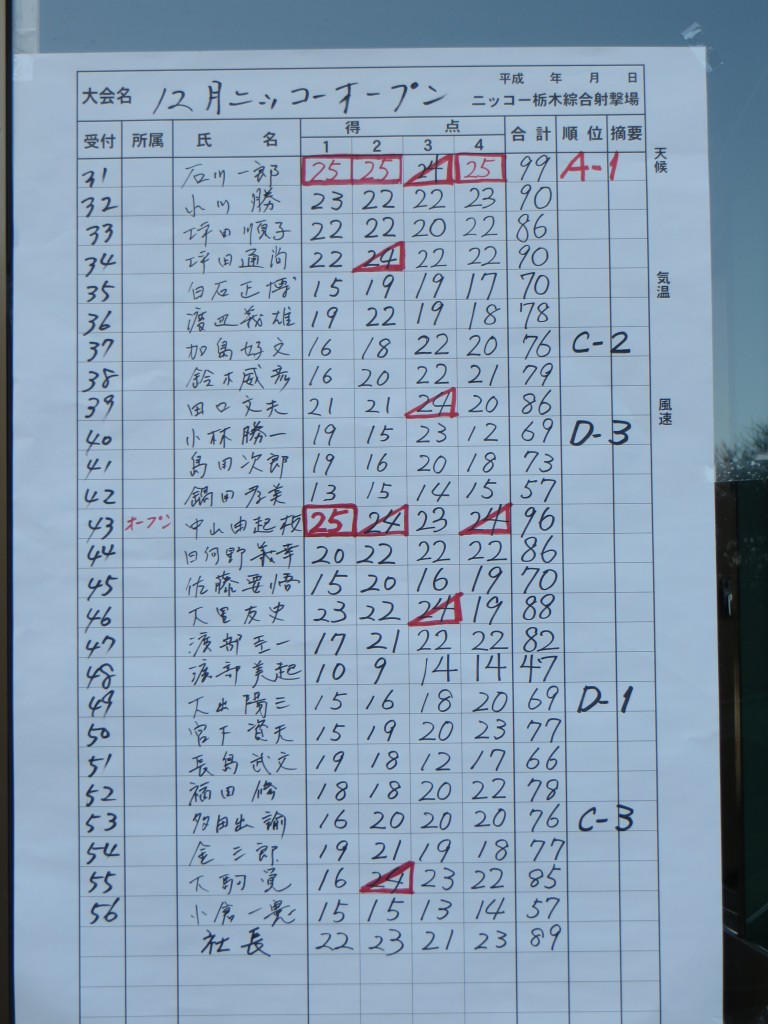 平成 年 月 日
大会名 12月ニッコーオープン ニッコー栃木綜合射撃場
受付 所属 氏 名 得 点 合計 順位 摘要
1 2 3 4
天候
31 石川一郎 25 25 24 25 99 A-1
32 小川 勝 23 22 22 23 90
33 坪田順子 22 22 20 22 86
34 坪田通尚 22 24 22 22 90
気温
35 白石正博 15 19 19 17 70
36 渡辺義雄 19 22 19 18 78
37 加島好文 16 18 22 20 76 C-2
38 鈴木威彦 16 20 22 21 79
39 田口文夫 21 21 24 20 86
風速
40 小林勝一 19 15 23 12 69 D-3
41 島田次郎 19 16 20 18 73
42 鍋田孝美 13 15 14 15 57
43 オープン 中山由起枝 25 24 23 24 96
44 日向野義幸 20 22 22 22 86
45 佐藤要悟 15 20 16 19 70
46 大里友史 23 22 24 19 88
47 渡部圭一 17 21 22 22 82
48 渡部美起 10 9 14 14 47
49 大出陽三 15 16 18 20 69 D-1
50 宮下資夫 15 19 20 23 77
51 長島武文 19 18 12 17 66
52 福田修 18 18 20 22 78
53 多田出諭 16 20 20 20 76 C-3
54 金三郎 19 21 19 18 77
55 大駒覚 16 24 23 22 85
56 小倉一彰 15 15 13 14 57
社長 22 23 21 23 89